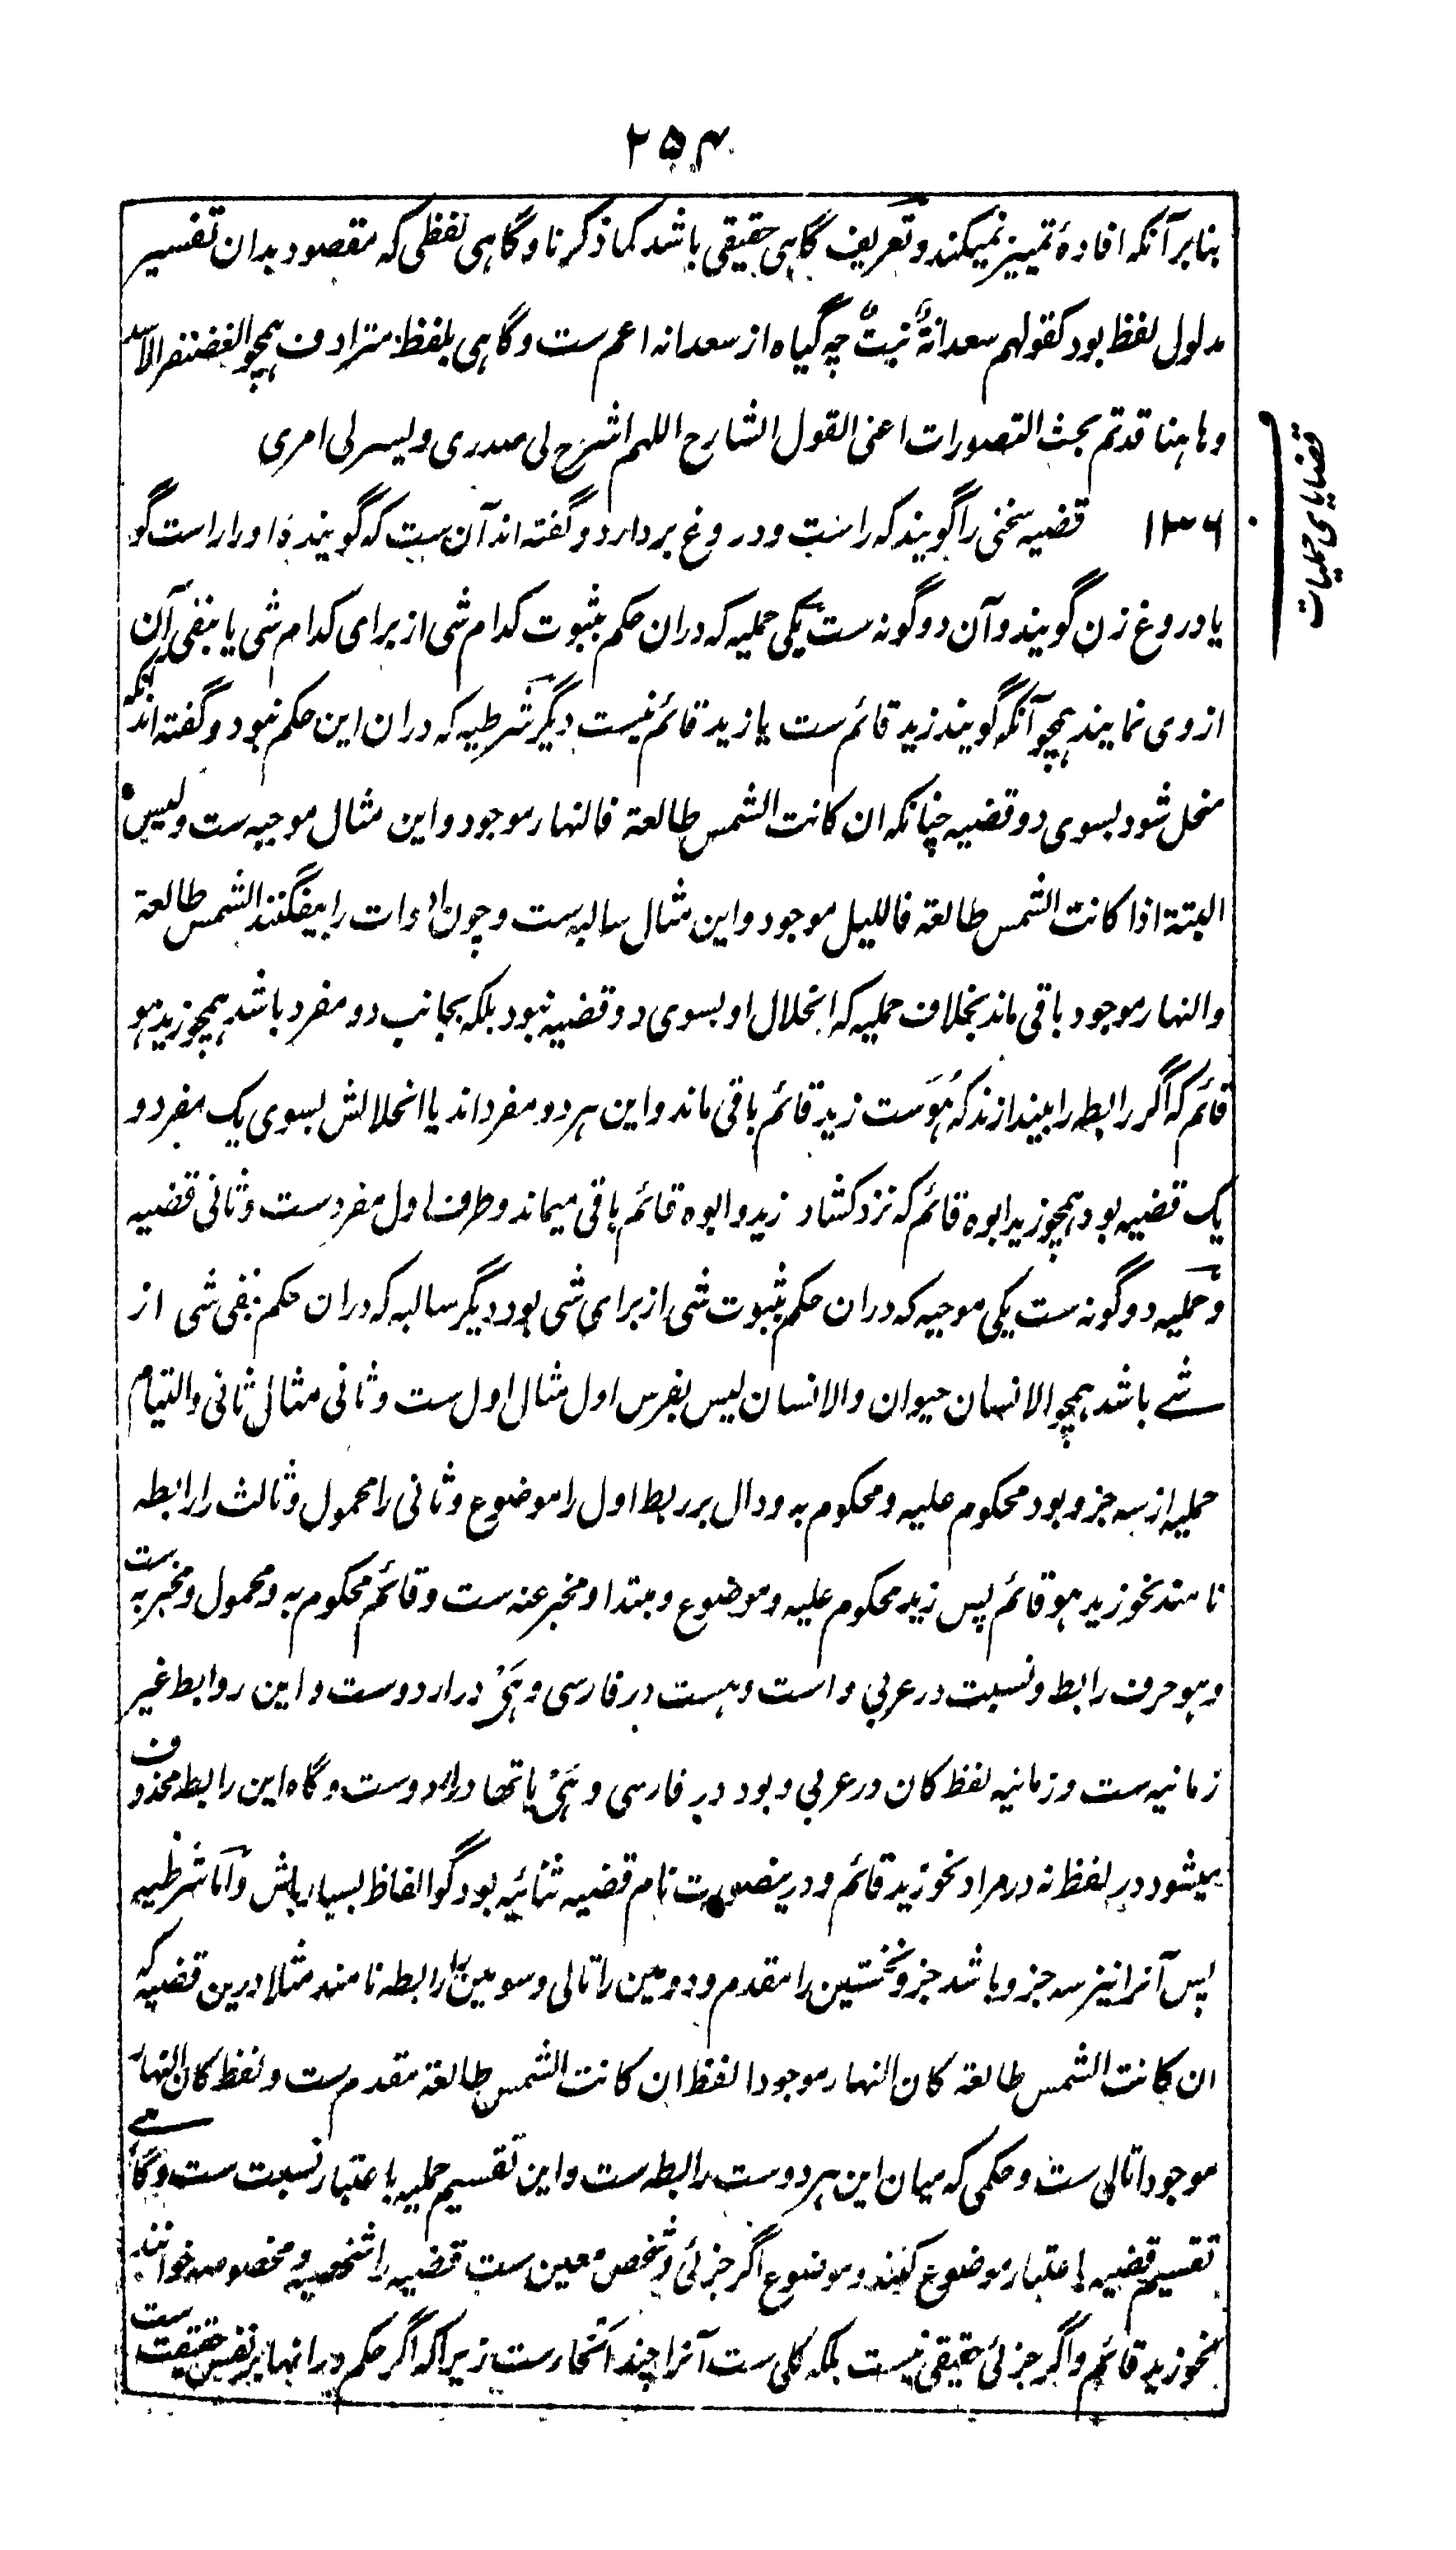 ۲۵۴
بنا بر آنکه افادهٔ تمییز نمیکند و تعریف گاهی حقیقی باشد کما ذکرنا و گاهی لفظی که مقصود بدان تفسیر
مدلول لفظ بود کقولهم سعدانةٌ نبتٌ چه گیاه از سعدانه اعم ست و گاهی بلفظ مترادف همچو الغضنفر الاسد
و هاهنا قد تم بحث التصورات اعنی القول الشارح اللهم اشرح لی صدری و یسر لی امری
قضایای حملیات
۱۳۶ قضیه سخنی را گویند که راست و دروغ بردارد و گفته اند آن ست که گویندهٔ او را راست گو
یا دروغ زن گویند و آن دو گونه ست یکی حملیه که دران حکم بثبوت کدام شی از برای کدام شی یا بنفی آن
از وی نمایند همچو آنکه گویند زید قائم ست یا زید قائم نیست دیگر شرطیه که دران این حکم نبود و گفته اند آنکه
منحل شود بسوی دو قضیه چنانکه ان کانت الشمس طالعة فالنهار موجود و این مثال موجبه ست و لیس
البتة اذا کانت الشمس طالعة فاللیل موجود و این مثال سالبه ست و چون ادوات را بیفگنند الشمس طالعة
والنهار موجود باقی ماند بخلاف حملیه که انحلال او بسوی دو قضیه نبود بلکه بجانب دو مفرد باشد همچو زید هو
قائم که اگر رابطه را بیندازند که هُوَ ست زید قائم باقی ماند و این هر دو مفرد اند یا انحلالش بسوی یک مفرد و
یک قضیه بود همچو زید ابوه قائم که نزد کشاد زید و ابوه قائم باقی میماند و طرف اول مفرد ست و ثانی قضیه
و حملیه دو گونه ست یکی موجبه که دران حکم بثبوت شی از برای شی بود دیگر سالبه که دران حکم بنفی شی از
شے باشد همچو الانسان حیوان والانسان لیس بفرس اول مثال اول ست و ثانی مثال ثانی و التیام
حملیه از سه جزو بود محکوم علیه و محکوم به و دال بر ربط اول را موضوع و ثانی را محمول و ثالث را رابطه
نامند نحو زید هو قائم پس زید محکوم علیه و موضوع و مبتدا و مخبر عنه ست و قائم محکوم به و محمول و مخبر به ست
و هو حرف رابط و نسبت در عربی و است و هست در فارسی و ہَیْ در اردوست و این روابط غیر
زمانیه ست و زمانیه لفظ کان در عربی و بود در فارسی و ہَیْ یا تها در اردوست و گاه این رابط محذوف
میشود در لفظ نه در مراد نحو زید قائم و درینصورت نام قضیه ثنائیه بود گو الفاظ بسیار باش و اما شرطیه
پس آنرا نیز سه جزو باشد جزو نخستین را مقدم و دومین را تالی و سومین را رابطه نامند مثلا درین قضیه که
ان کانت الشمس طالعة کان النهار موجودا لفظ ان کانت الشمس طالعة مقدم ست و لفظ کان النهار
موجودا تالی ست و حکمی که میان این هر دوست رابطه ست و این تقسیم حملیه باعتبار نسبت ست و گاهے
تقسیم قضیه باعتبار موضوع کنند و موضوع اگر جزئی و شخص معین ست قضیه را شخصیه و مخصوصه خوانند
نحو زید قائم و اگر جزئی حقیقی نیست بلکه کلی ست آنرا چند انحا ست زیراکه اگر حکم درانها بر نفس حقیقت ست